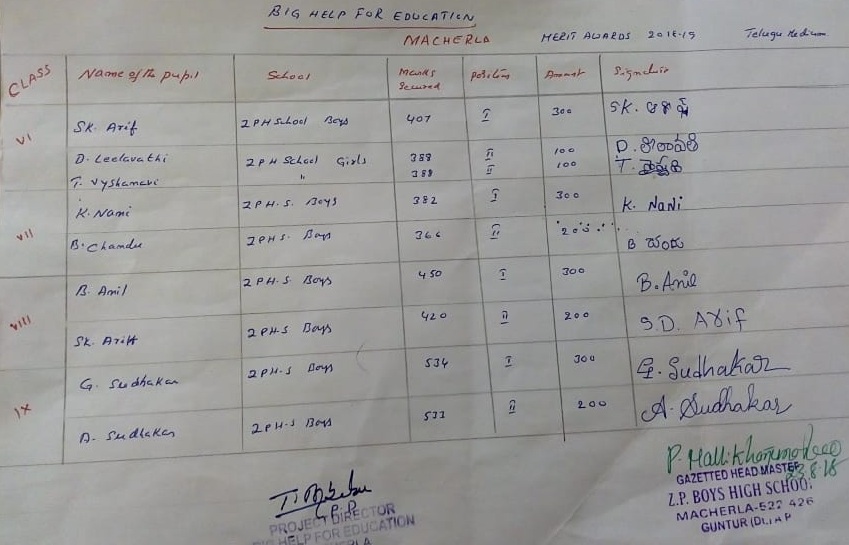 BIG HELP FOR EDUCATION
MACHERLA MERIT AWARDS 2018-19 Telugu Medium
CLASS Name of the pupil School Marks Secured Position Amount Signature
VI SK. Arif ZPH School Boys 407 I 300 SK.
D. Leelavathi ZPH School Girls 388 II 100 D.
T. Vyshanavi " 388 II 100 T.
K. Nani ZPH.S. Boys 382 I 300 K. NaNi
VII B. Chandu ZPHS. Boys 366 II 200 B చందు
B. Anil ZPH.S Boys 450 I 300 B. Anil
VIII SK. Ariff ZPH.S Boys 420 II 200 S.D. Arif
G. Sudhakar ZPH.S Boys 534 I 300 G. Sudhakar
IX A. Sudhakar ZPH.S Boys 533 II 200 A. Sudhakar
23.8.18
GAZETTED HEAD MASTER
Z.P. BOYS HIGH SCHOOL
MACHERLA-522 426
GUNTUR (Dt.) A P
PROJECT DIRECTOR
BIG HELP FOR EDUCATION